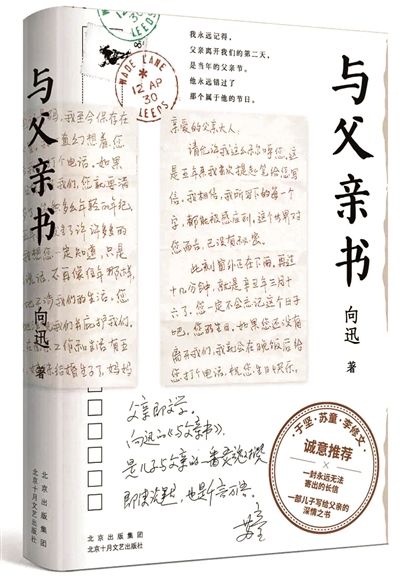 我永远记得，
父亲离开我们的第二天，
是当年的父亲节。
他永远错过了
那个属于他的节日。
WADE LANE
12 AP
30
LEEDS
与父亲书
向迅
著
亲爱的父亲大人：
请允许我这么称呼您。这
是五年来我首次提起笔给您写
信，我相信，我所写下的每一个
字，都能被感应到。这个世界对
您而言，已没有秘密。
此刻窗外正在下雨。再过
十几分钟，就是辛丑年三月十
六了。您一定不会忘记这个日子
吧，您的生日。如果您还没有
离开我们，我就会在晚饭后给
您打个电话，祝您生日快乐。
父亲即文学。
向迅的《与父亲书》，
是儿子与父亲的一番灵魂对视
即使沉默，也是千言万语。
苏童
于坚·苏童·李修文
诚意推荐
一封永远无法
寄出的长信
一部儿子写给父亲的
深情之书
与父亲书
向迅
著
北京出版集团
北京十月文艺出版社